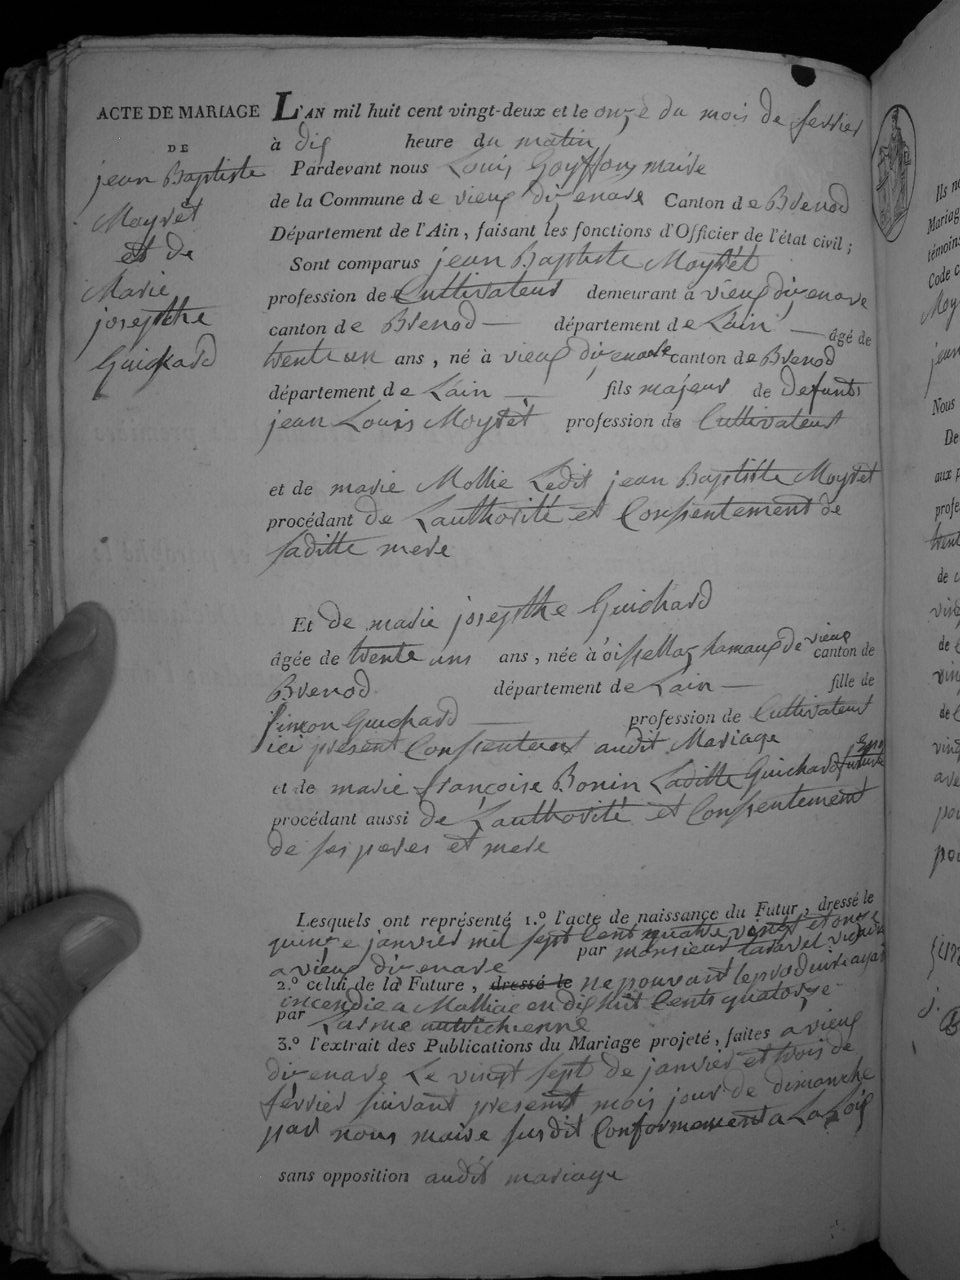 ACTE DE MARIAGE
DE
jean Baptiste
Moyret
et de
Marie
josephthe
Guichard
L'AN mil huit cent vingt-deux et le onze du mois de fevrier
à dix heure du matin
Pardevant nous Louis Goyffon maire
de la Commune de vieux dizenave Canton de Brenod
Département de l'Ain, faisant les fonctions d'Officier de l'état civil;
Sont comparus jean Baptiste Moyret
profession de Cultivateur demeurant à vieux dizenave
canton de Brenod département de Lain âgé de
trente un ans, né à vieux dizenave canton de Brenod
département de Lain fils majeur de defunt
jean Louis Moyret profession de Cultivateur
et de marie Mollie Ledit jean Baptiste Moyret
procédant de Lauthorité et Consentement de
saditte mere
Et de marie josephthe Guichard
âgée de trente uns ans, née à oissellaz hamaux de vieux
canton de
Brenod département de Lain fille de
simeon Guichard profession de Cultivateur
ici present Consentent audit Mariage
et de marie françoise Bonin Laditte Guichard future
procédant aussi de Lauthorité et Consentement
de ses peres et mere
Lesquels ont représenté 1.º l'acte de naissance du Futur, dressé le
quinze janvier mil sept Cent quatre vingt et onze
a vieux dizenave par monsieur Taravel vicaire
2.º celui de la Future, dressé le ne pouvant le produire ayant
incendie a en dix huit Cents quatorze
par Larme autrichienne
3.º l'extrait des Publications du Mariage projeté, faites a vieux
dizenave Le vingt sept de janvier et trois de
fevrier suivant present mois jour de dimanche
par nous maire susdit Conformement a La Loix
sans opposition audit mariage
Ils
Mariag
témoins
Code c
Moy
jean
Nous
De
aux p
profe
trent
de
de
de